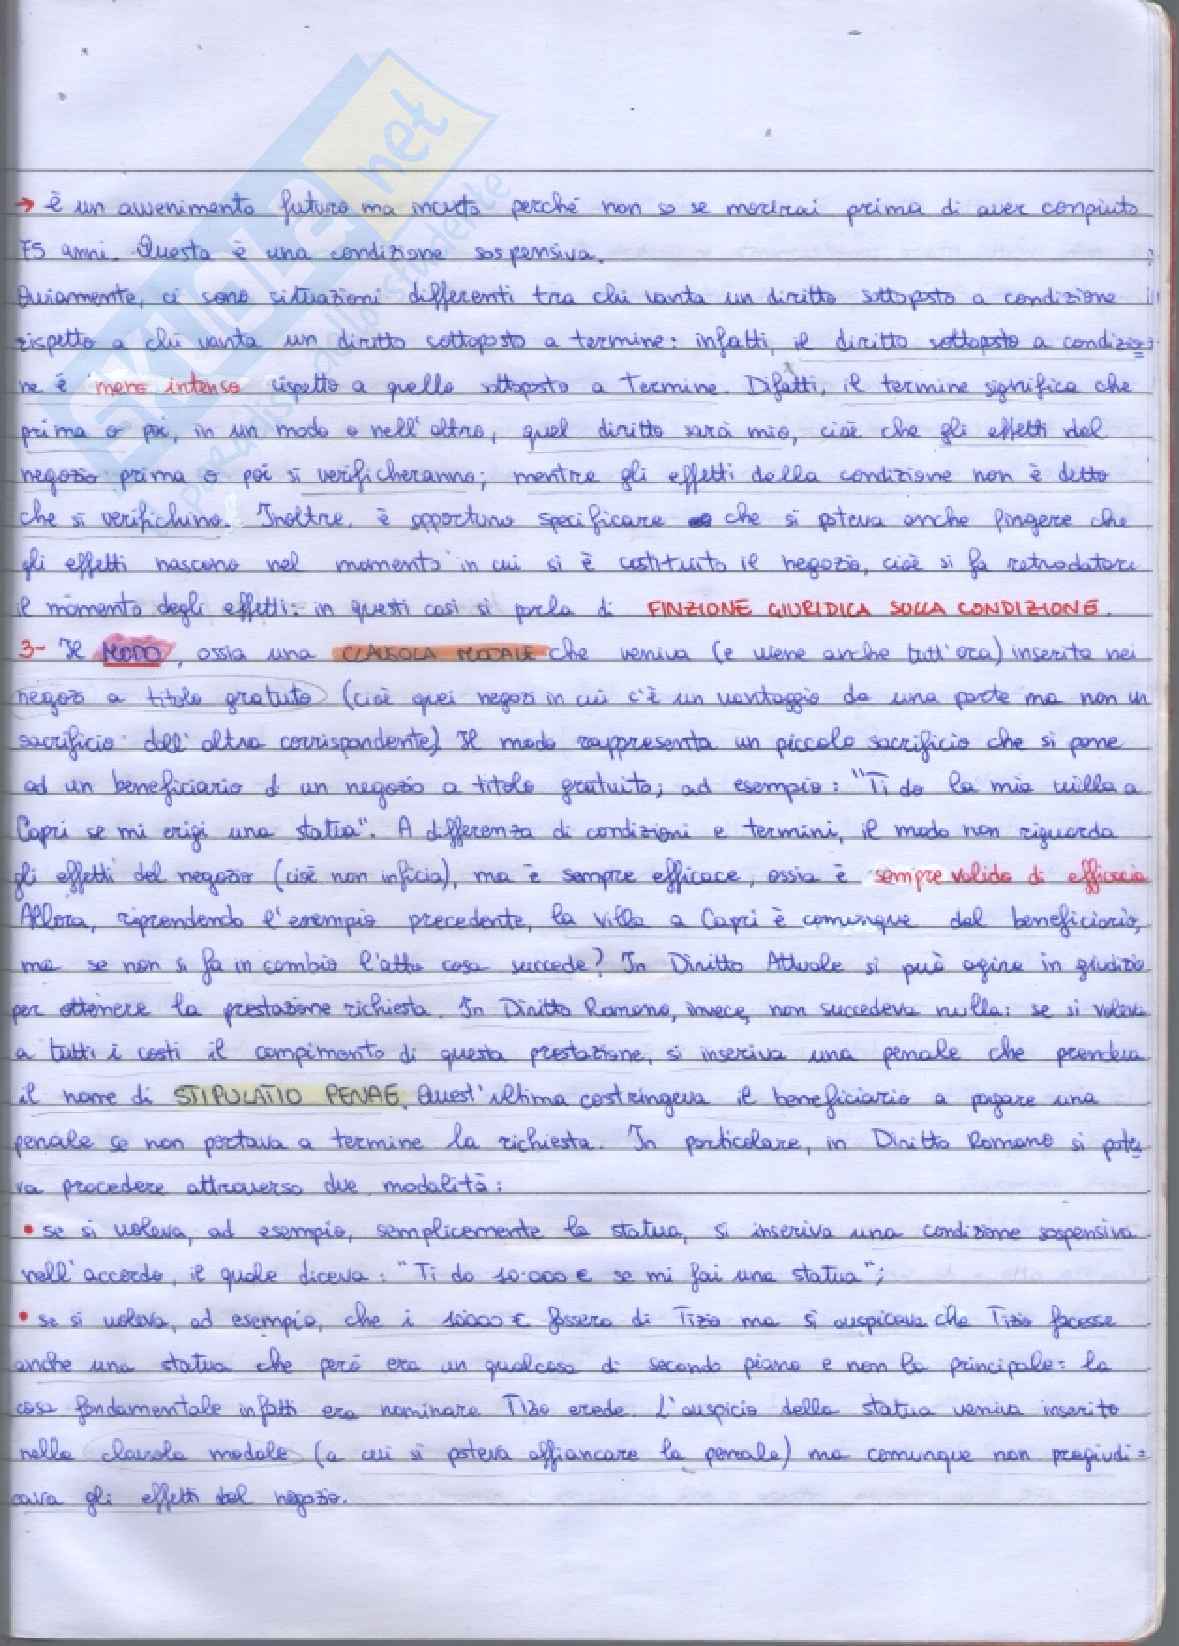 SKUOLA.net
→ è un avvenimento futuro ma incerto perché non so se morirai prima di aver compiuto
75 anni. Questa è una condizione sospensiva.
Ovviamente, ci sono situazioni differenti tra chi vanta un diritto sottoposto a condizione
rispetto a chi vanta un diritto sottoposto a termine: infatti, il diritto sottoposto a condizio=
ne è meno intenso rispetto a quello sottoposto a termine. Difatti, il termine significa che
prima o poi, in un modo o nell'altro, quel diritto sarà mio, cioè che gli effetti del
negozio prima o poi si verificheranno; mentre gli effetti della condizione non è detto
che si verifichino. Inoltre, è opportuno specificare che si poteva anche fingere che
gli effetti nascono nel momento in cui si è costituito il negozio, cioè si fa retrodatare
il momento degli effetti: in questi casi si parla di FINZIONE GIURIDICA SULLA CONDIZIONE.
3- Il MODO, ossia una CLAUSOLA MODALE che veniva (e viene anche tutt'ora) inserita nei
negozi a titolo gratuito (cioè quei negozi in cui c'è un vantaggio da una parte ma non un
sacrificio dell'altra corrispondente). Il modo rappresenta un piccolo sacrificio che si pone
ad un beneficiario d un negozio a titolo gratuito; ad esempio: "Ti do la mia villa a
Capri se mi erigi una statua". A differenza di condizioni e termini, il modo non riguarda
gli effetti del negozio (cioè non inficia), ma è sempre efficace, ossia è sempre valido di efficacia
Allora, riprendendo l'esempio precedente, la villa a Capri è comunque del beneficiario,
ma se non si fa in cambio l'atto cosa succede? In Diritto Attuale si può agire in giudizio
per ottenere la prestazione richiesta. In Diritto Romano, invece, non succedeva nulla: se si voleva
a tutti i costi il compimento di questa prestazione, si inseriva una penale che prendeva
il nome di STIPULATIO PENAE. Quest'ultima costringeva il beneficiario a pagare una
penale se non portava a termine la richiesta. In particolare, in Diritto Romano si pote=
va procedere attraverso due modalità:
• se si voleva, ad esempio, semplicemente la statua, si inseriva una condizione sospensiva
nell'accordo, il quale diceva: "Ti do 10.000 € se mi fai una statua";
• se si voleva, ad esempio, che i 10000 € fossero di Tizio ma si auspicava che Tizio facesse
anche una statua che però era un qualcosa di secondo piano e non la principale: la
cosa fondamentale infatti era nominare Tizio erede. L'auspicio della statua veniva inserito
nella clausola modale (a cui si poteva affiancare la penale) ma comunque non pregiudi=
cava gli effetti del negozio.